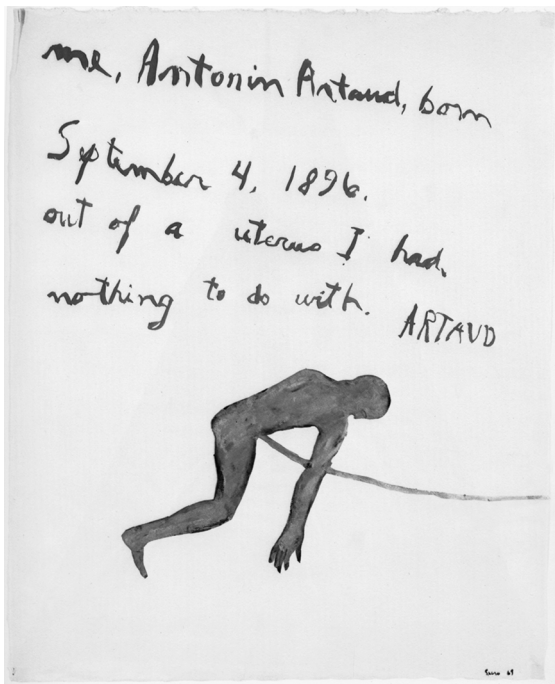 me, Antonin Artaud, born
September 4, 1896.
out of a uterus I had,
nothing to do with. ARTAUD
Spero 69